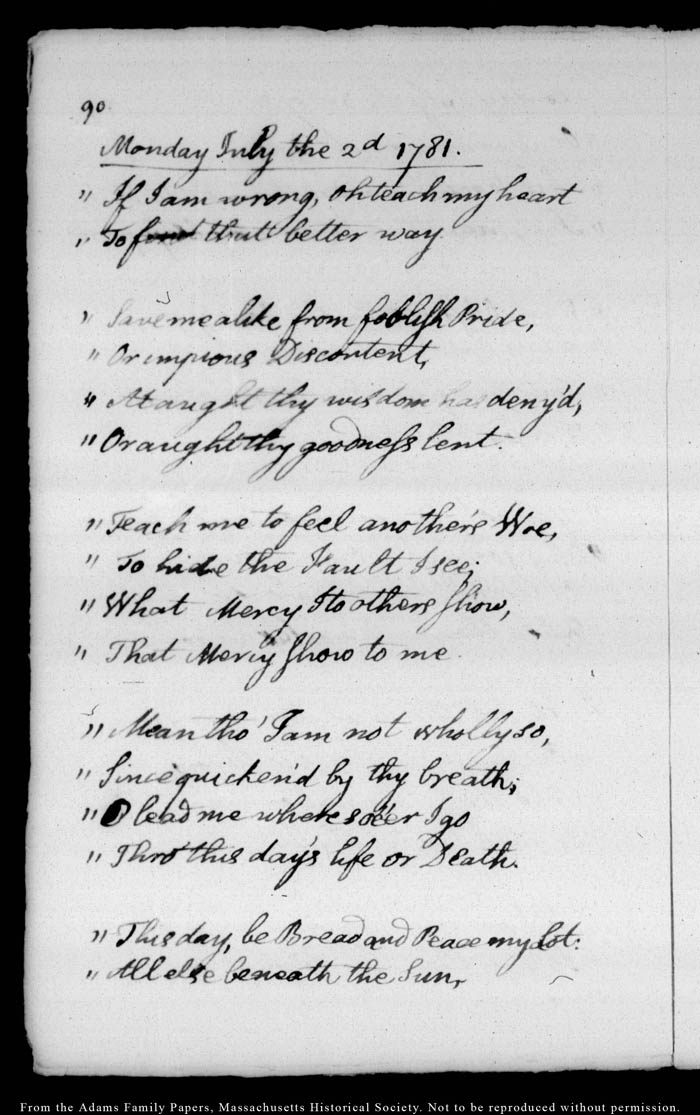 90.
Monday July the 2d 1781.
" If I am wrong, oh teach my heart
" To find that better way.
" Save me alike from foolish Pride,
" Or impious Discontent,
" At aught thy wisdom has deny'd,
" Or aught thy goodness lent.
" Teach me to feel another's Woe,
" To hide the Fault I see;
" What Mercy I to others show,
" That Mercy show to me.
" Mean tho' I am not wholly so,
" Since quicken'd by thy breath;
" O lead me wheresoe'er I go
" Thro' this day's life or Death.
" This day, be Bread and Peace my Lot:
" All else beneath the Sun,
From the Adams Family Papers, Massachusetts Historical Society. Not to be reproduced without permission.